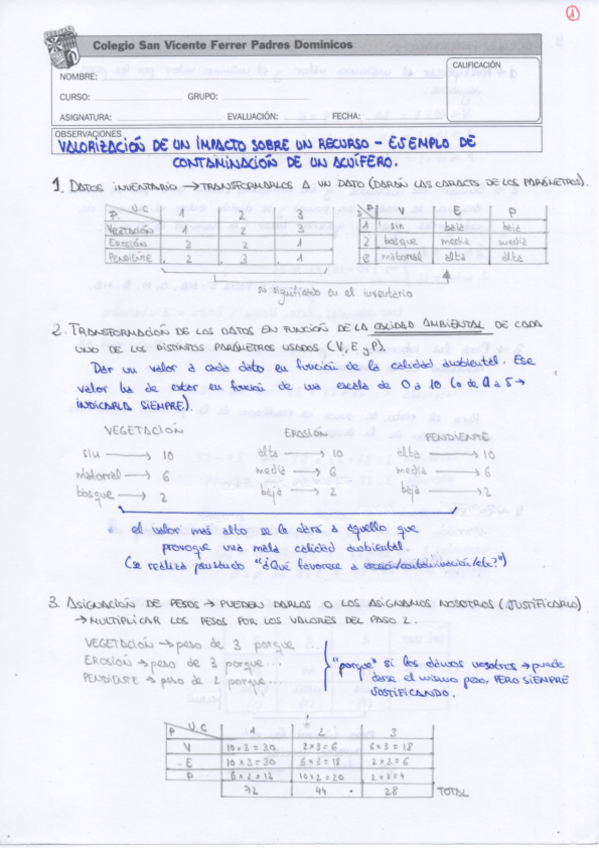 1
Colegio San Vicente Ferrer Padres Dominicos
NOMBRE:
CALIFICACIÓN
CURSO: GRUPO:
ASIGNATURA: EVALUACIÓN: FECHA:
OBSERVACIONES
VALORIZACIÓN DE UN IMPACTO SOBRE UN RECURSO - EJEMPLO DE
CONTAMINACIÓN DE UN ACUÍFERO.
1. DATOS INVENTARIO → TRANSFORMARLOS A UN DATO (DARÁN LAS CARACTS DE LOS PARÁMETROS).
P. U.C 1 2 3
VEGETACIÓN 1 2 3
EROSIÓN 3 2 1
PENDIENTE 2 3 1
P V E P
1 sin baja baja
2 bosque media media
3 matorral alta alta
su significado en el inventario
2. TRANSFORMACIÓN DE LOS DATOS EN FUNCIÓN DE LA CALIDAD AMBIENTAL DE CADA
UNO DE LOS DISTINTOS PARÁMETROS USADOS (V, E y P).
Dar un valor a cada dato en función de la calidad ambiental. Ese
valor ha de estar en función de una escala de 0 a 10 (o de 0 a 5 →
INDICARLA SIEMPRE).
VEGETACIÓN EROSIÓN PENDIENTE
sin → 10 alta → 10 alta → 10
matorral → 6 media → 6 media → 6
bosque → 2 baja → 2 baja → 2
el valor más alto se le dará a aquello que
provoque una mala calidad ambiental
(se realiza pensando "¿Qué favorece a erosión/contaminación/etc?")
3. ASIGNACIÓN DE PESOS → PUEDEN DARLOS O LOS ASIGNAMOS NOSOTROS (JUSTIFICARLO)
→ MULTIPLICAR LOS PESOS POR LOS VALORES DEL PASO 2.
VEGETACIÓN → peso de 3 porque ...
EROSIÓN → peso de 3 porque ...
PENDIENTE → peso de 2 porque ...
"porque" si los damos nosotros → puede
darse el mismo peso, PERO SIEMPRE
JUSTIFICANDO.
P U.C 1 2 3
V 10x3=30 2x3=6 6x3=18
E 10x3=30 6x3=18 2x3=6
P 6x2=12 10x2=20 2x2=4
72 44 28 TOTAL